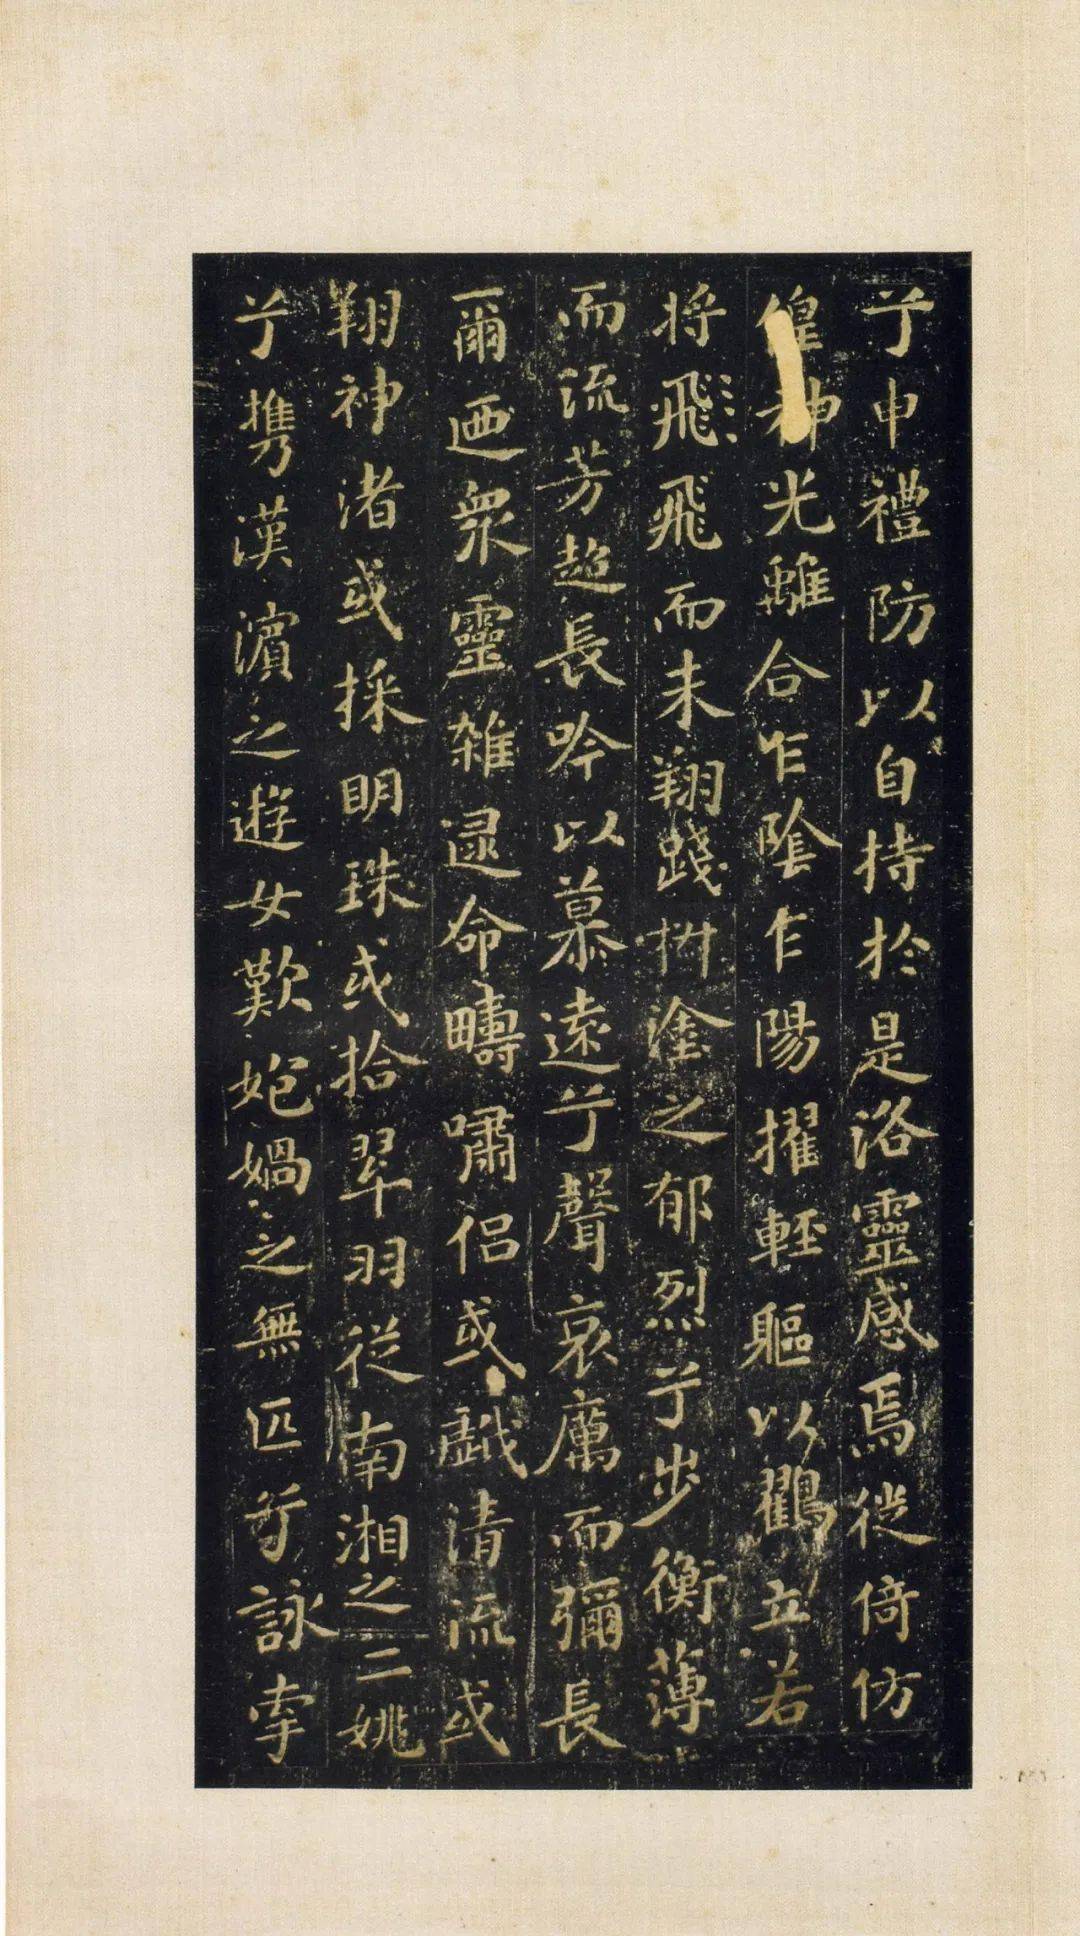 兮申禮防以自持於是洛靈感焉徙倚仿
偟神光離合乍陰乍陽擢輕軀以鶴立若
將飛飛而未翔踐椒塗之郁烈兮步衡薄
而流芳超長吟以慕遠兮聲哀厲而彌長
爾迺眾靈雜遝命疇嘯侶或戲清流或
翔神渚或採明珠或拾翠羽從南湘之二姚
兮携漢濵之遊女歎㚿媧之無匹兮詠牽